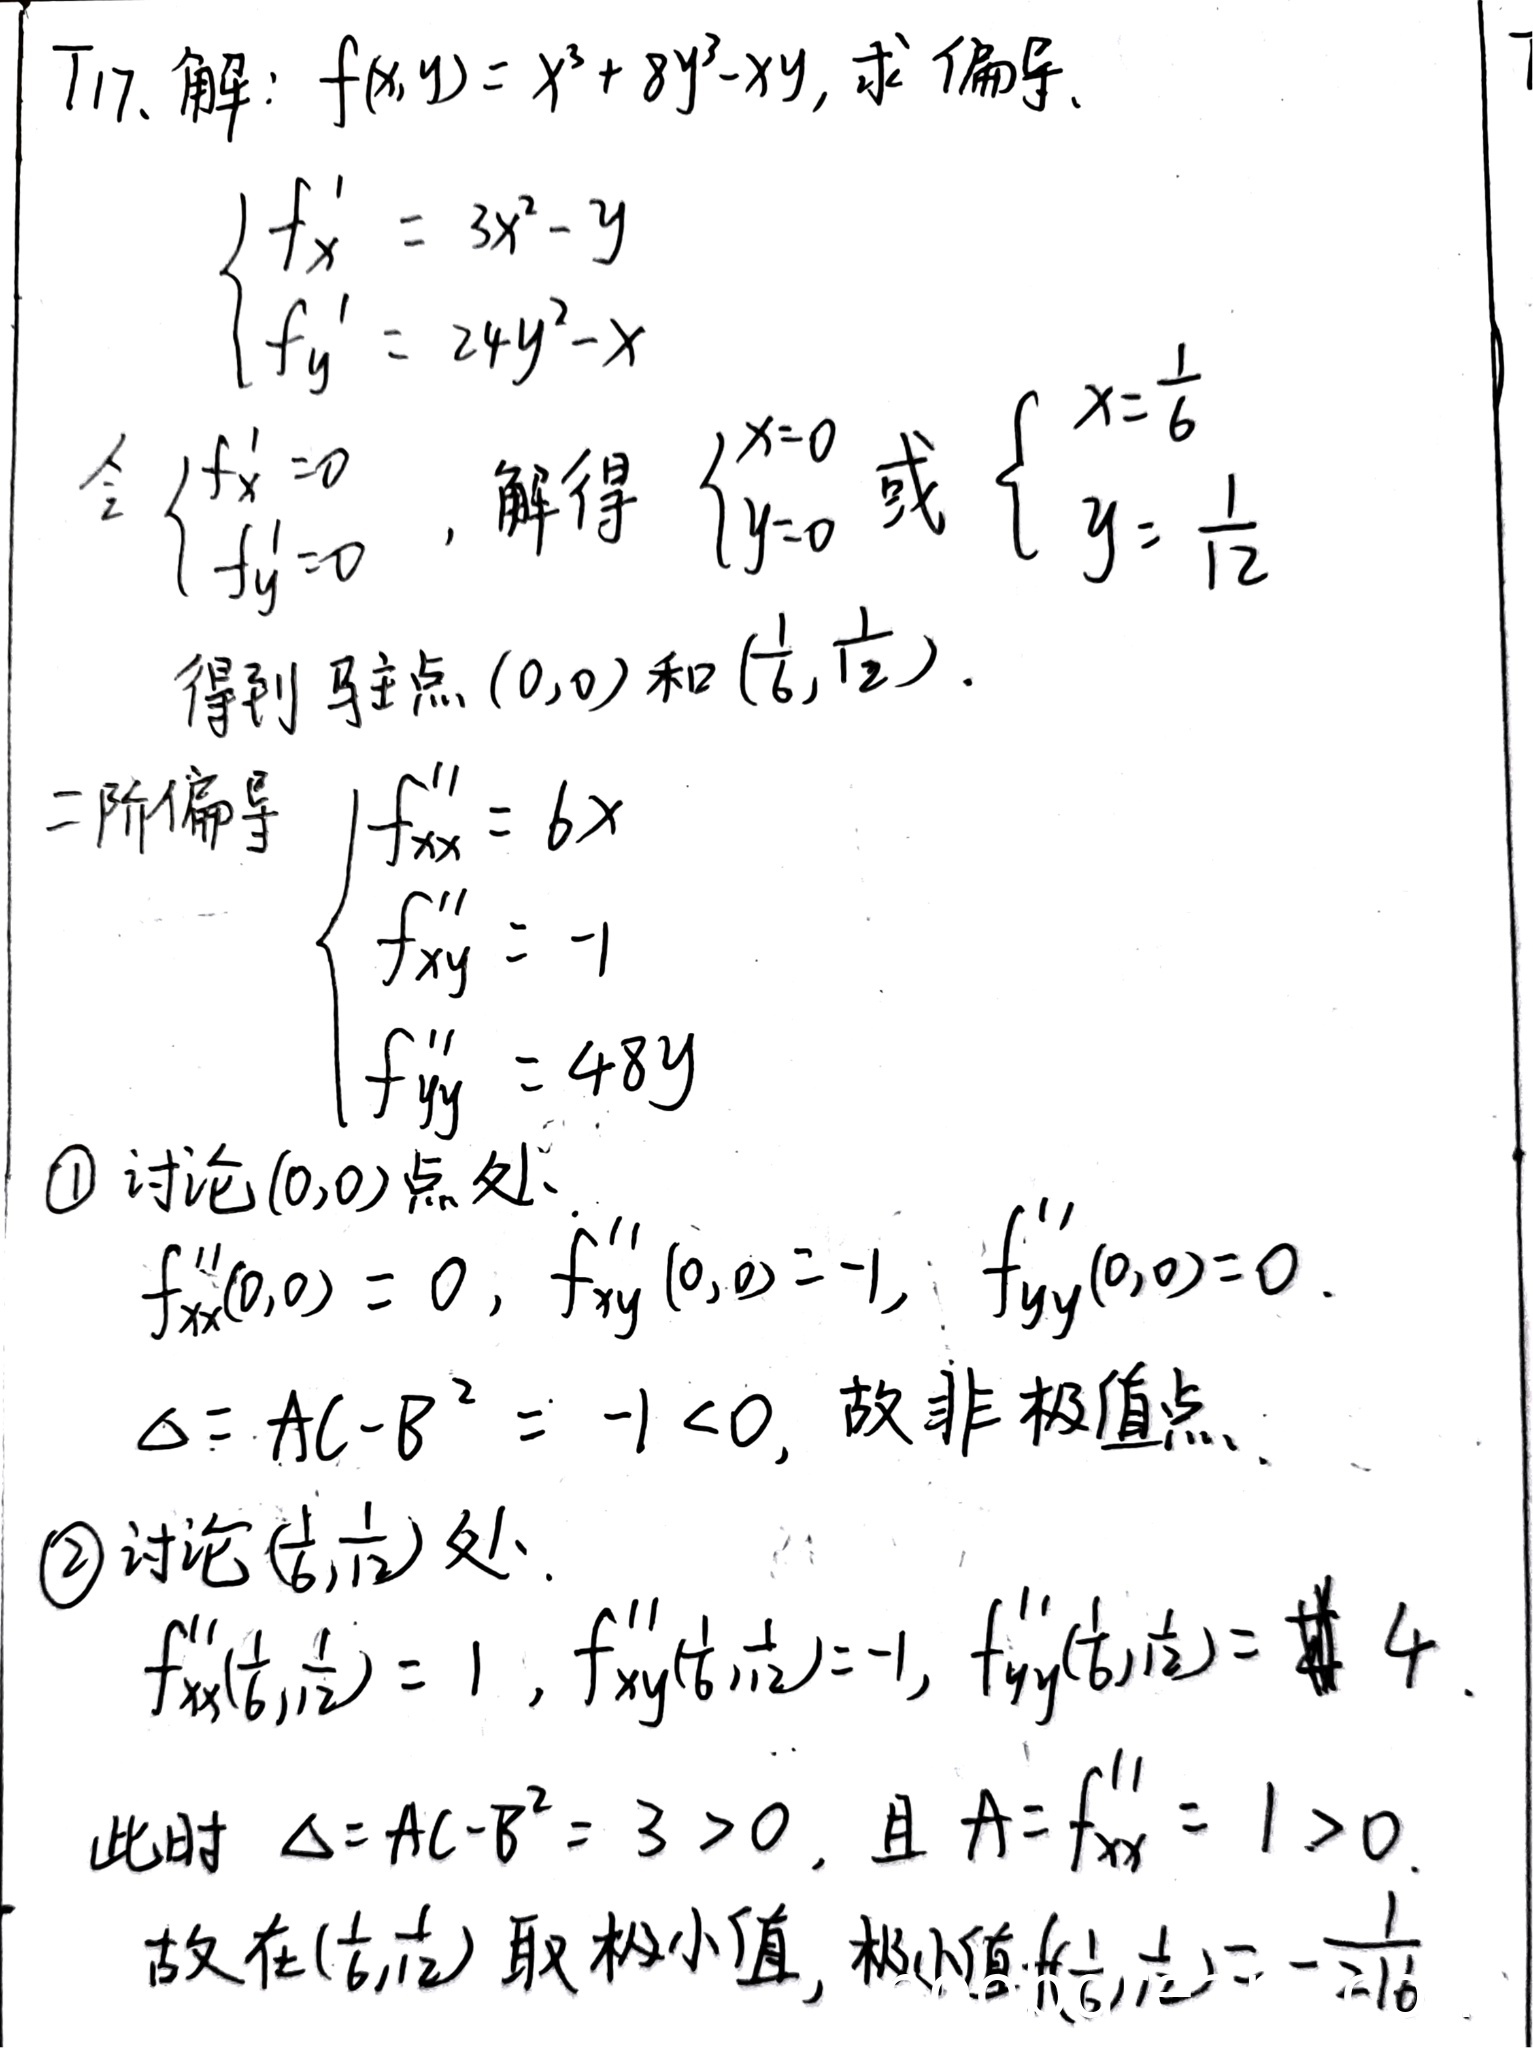 T17、解: f(x,y) = x³ + 8y³ - xy, 求偏导、
{ f'x = 3x² - y
f'y = 24y² - x
令 { f'x = 0, f'y = 0 , 解得 { x=0, y=0 或 { x = 1/6, y = 1/12
得到驻点 (0,0) 和 (1/6, 1/12).
二阶偏导 { f''xx = 6x
f''xy = -1
f''yy = 48y
① 讨论(0,0)点处、
f''xx(0,0) = 0, f''xy(0,0) = -1, f''yy(0,0) = 0.
△ = AC - B² = -1 < 0, 故非极值点、
② 讨论(1/6, 1/12)处、
f''xx(1/6, 1/12) = 1, f''xy(1/6, 1/12) = -1, f''yy(1/6, 1/12) = 4.
此时 △ = AC - B² = 3 > 0, 且 A = f''xx = 1 > 0.
故在(1/6, 1/12)取极小值, 极小值f(1/6, 1/12) = -1/216